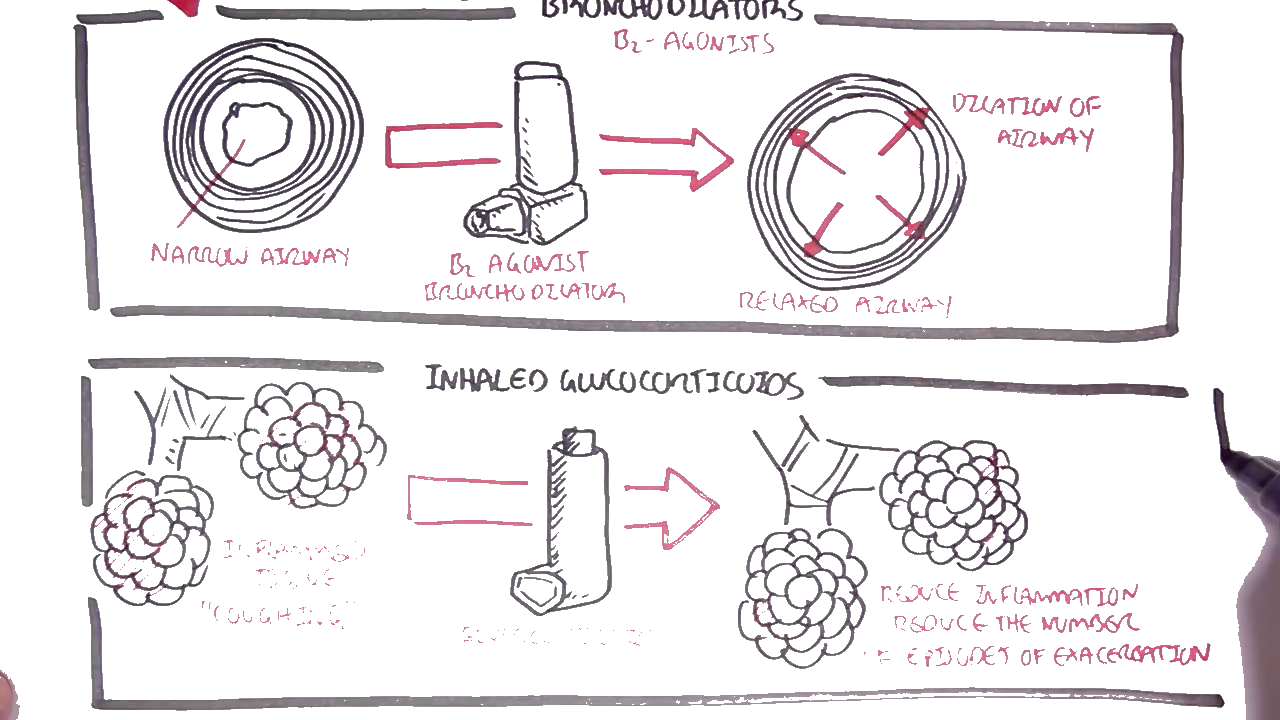 BRONCHODILATORS
B2- AGONISTS
DILATION OF
AIRWAY
NARROW AIRWAY
B2 AGONIST
BRONCHODILATOR
RELAXED AIRWAY
INHALED GLUCOCORTICOIDS
INFLAMMED
TISSUE
"COUGHING"
REDUCE INFLAMMATION
REDUCE THE NUMBER
EPISODES OF EXACERBATION